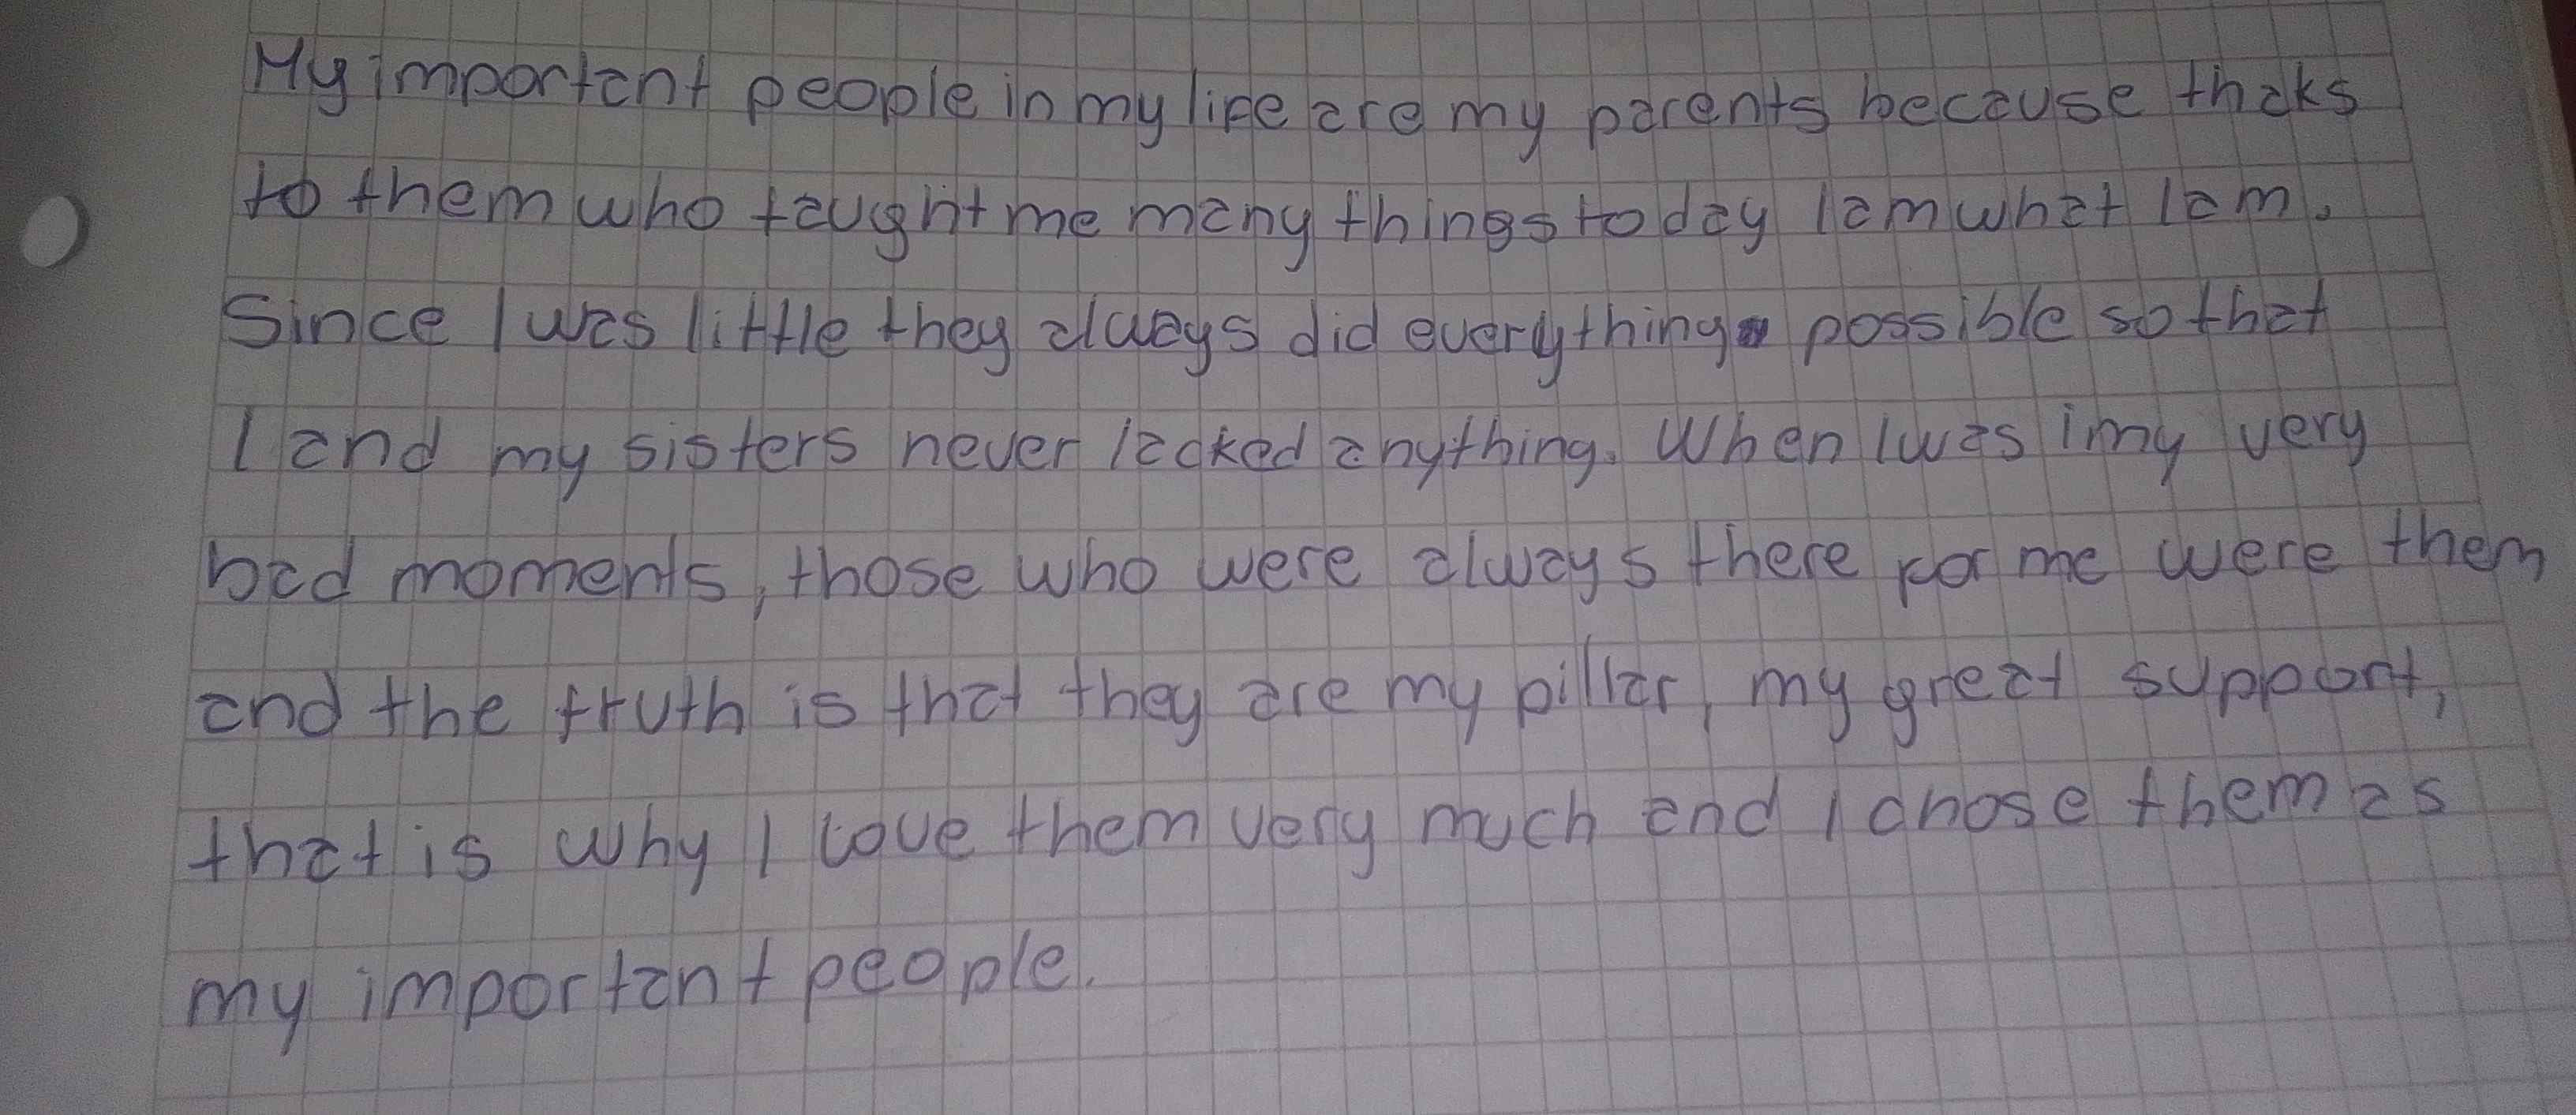 My important people in my life are my parents because thaks
to them who taught me many things today I am what I am.
Since I was little they always did everything possible so that
I and my sisters never lacked anything. When I was imy very
bad moments, those who were always there for me were them
and the truth is that they are my pillar, my great support,
that is why I love them very much and I chose them as
my important people.